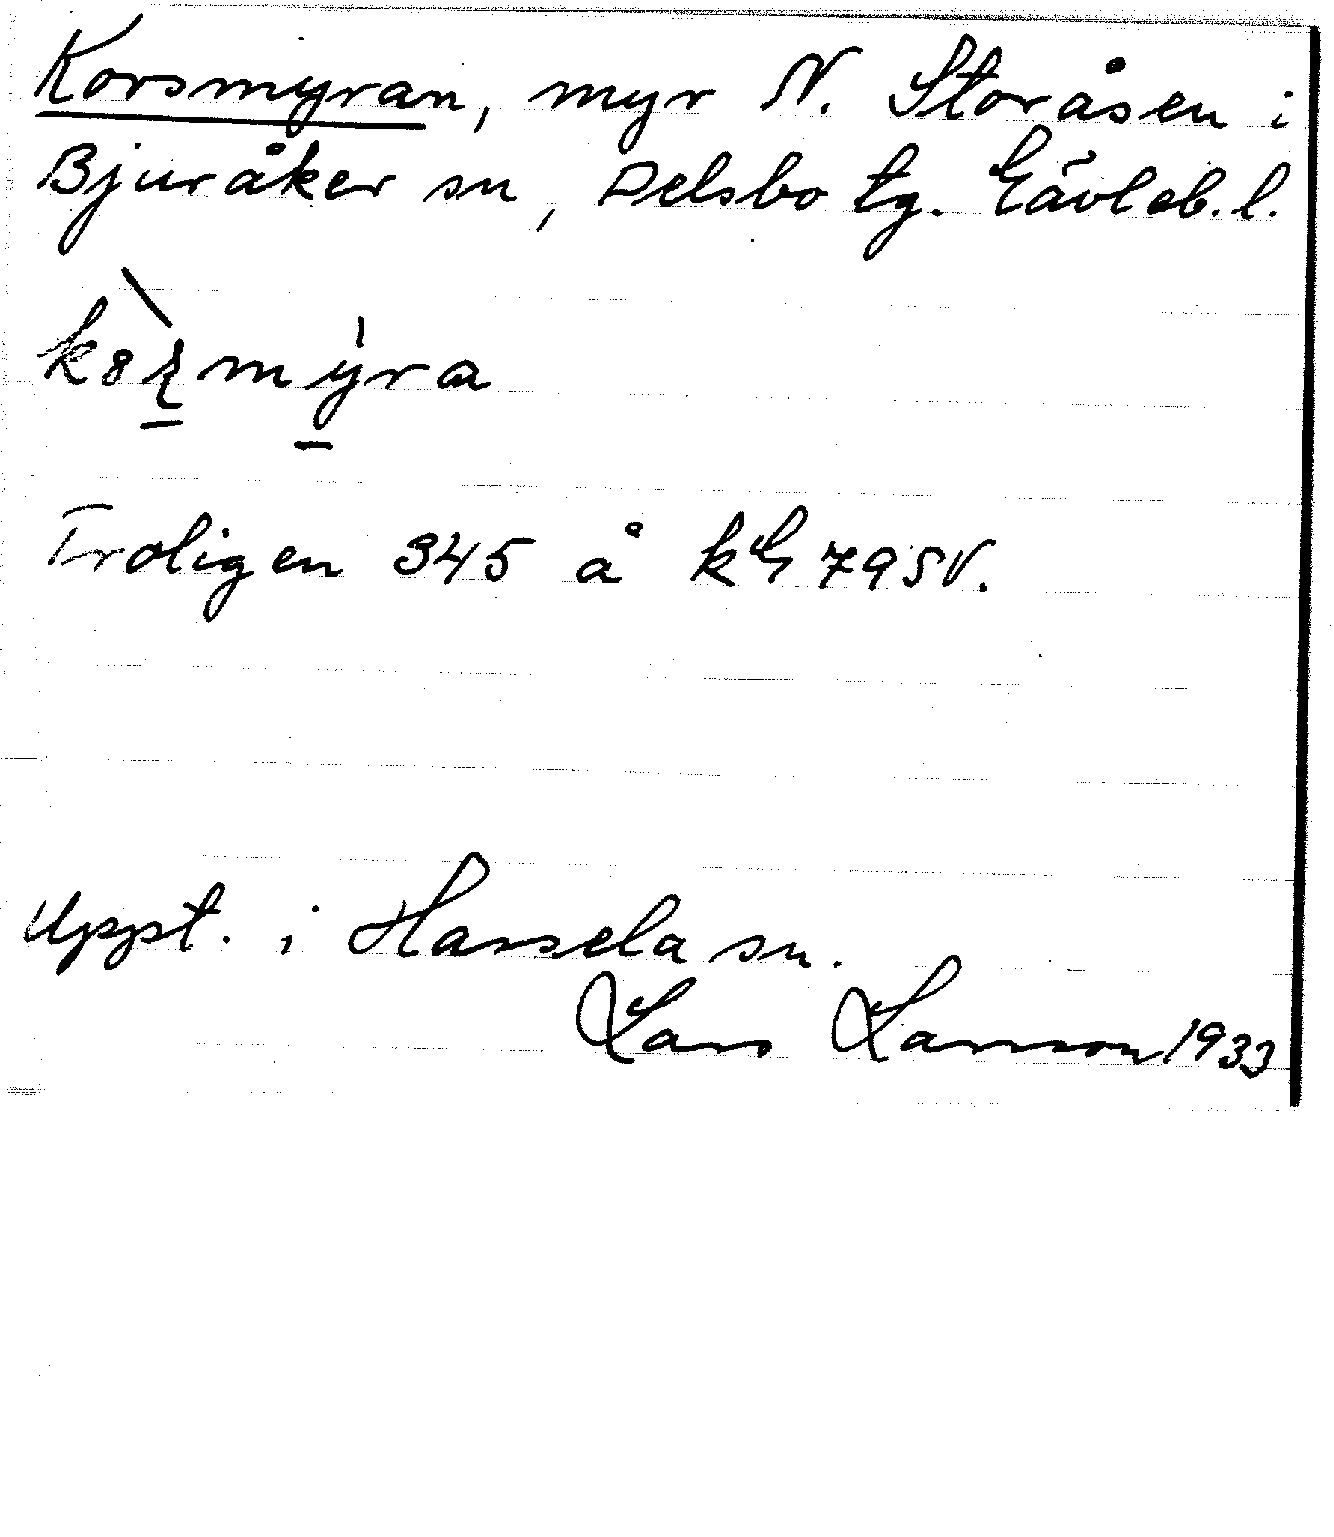 Korsmyran, myr N. Storåsen i
Bjuråker sn, Delsbo tg. Gävleb. l.
Troligen 345 å kG 79 SV.
Uppt. i Hassela sn.
Lars Larsson 1933